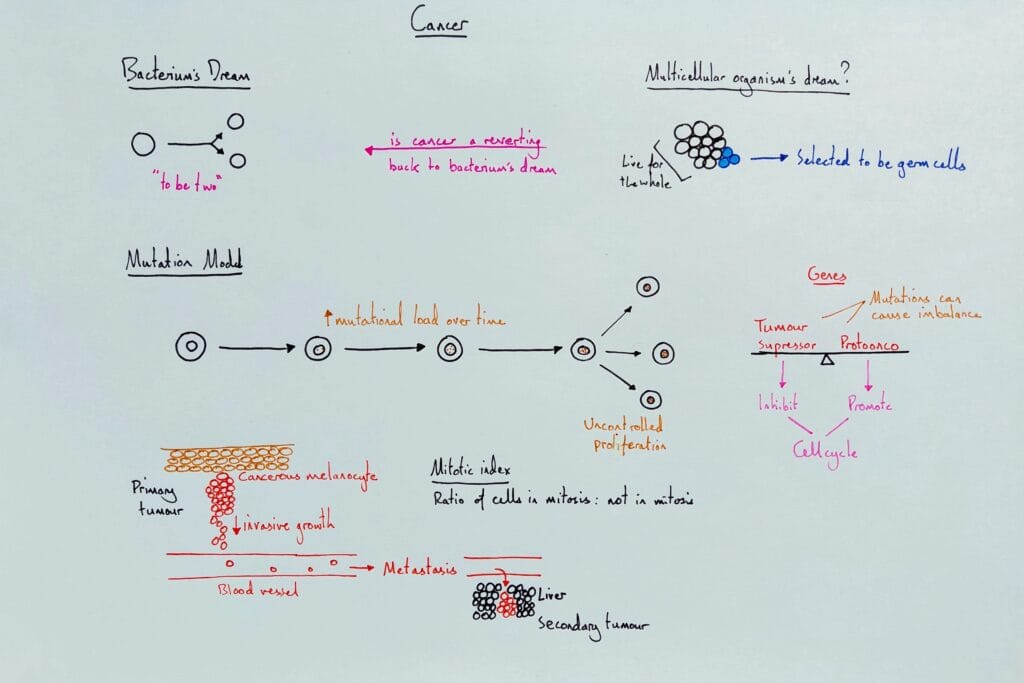 Cancer
Bacterium's Dream
"to be two"
is cancer a reverting
back to bacterium's dream
Multicellular organism's dream?
Live for
the whole
Selected to be germ cells
Mutation Model
↑ mutational load over time
Uncontrolled
proliferation
Genes
Mutations can
cause imbalance
Tumour
Supressor
Protoonco
Inhibit
Promote
Cell cycle
Primary
tumour
Cancerous melanocyte
↓ invasive growth
Blood vessel
Metastasis
Mitotic index
Ratio of cells in mitosis : not in mitosis
Liver
Secondary tumour